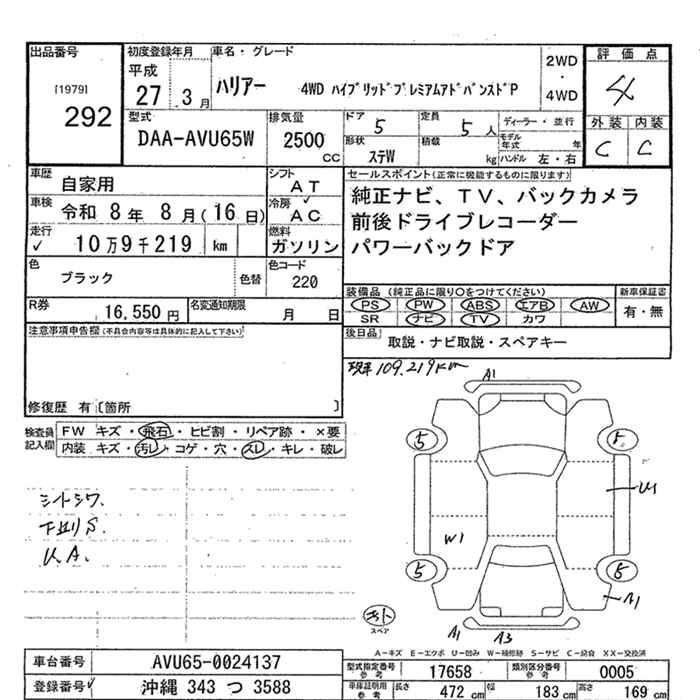 出品番号
[1979]
292
初度登録年月
平成
27 3月
車名・グレード
ハリアー 4WD ハイブリッドプレミアムアドバンスドP
2WD
・
4WD
評価点
4
外装 内装
C C
型式
DAA-AVU65W
排気量
2500
CC
ドア 5
定員 5 人
ディーラー・並行
形状 ステW
積載 kg
モデル年式 年
ハンドル 左・右
車歴 自家用
シフト AT
車検 令和 8年 8月(16日)
冷房 AC
走行 ✓ 10万9千219 km
燃料 ガソリン
色 ブラック
色替
色コード 220
R券 16,550円
名変通知期限 月 日
セールスポイント(正常に機能するものに限ります)
純正ナビ、TV、バックカメラ
前後ドライブレコーダー
パワーバックドア
装備品(純正品に限り○をつけてください)
新車保証書
PS PW ABS エアB AW
有・無
SR ナビ TV カワ
後日品
取説・ナビ取説・スペアキー
注意事項申告欄(不具合内容等は具体的に記入して下さい)
修復歴 有〔箇所 〕
109.219km
検査員記入欄
FW キズ・飛石・ヒビ割・リペア跡・×要
内装 キズ・汚レ・コゲ・穴・スレ・キレ・破レ
シートシワ.
下廻りS.
A1
5
5
U1
W1
5
A1
スペア
A1 A3
A-キズ E-エクボ U-凹み W-補修跡 S-サビ C-腐食 XX-交換済
車台番号 AVU65-0024137
登録番号 沖縄 343 つ 3588
型式指定番号参考 17658
類別区分番号参考 0005
車庫証明用参考 長さ 472 cm 幅 183 cm 高さ 169 cm